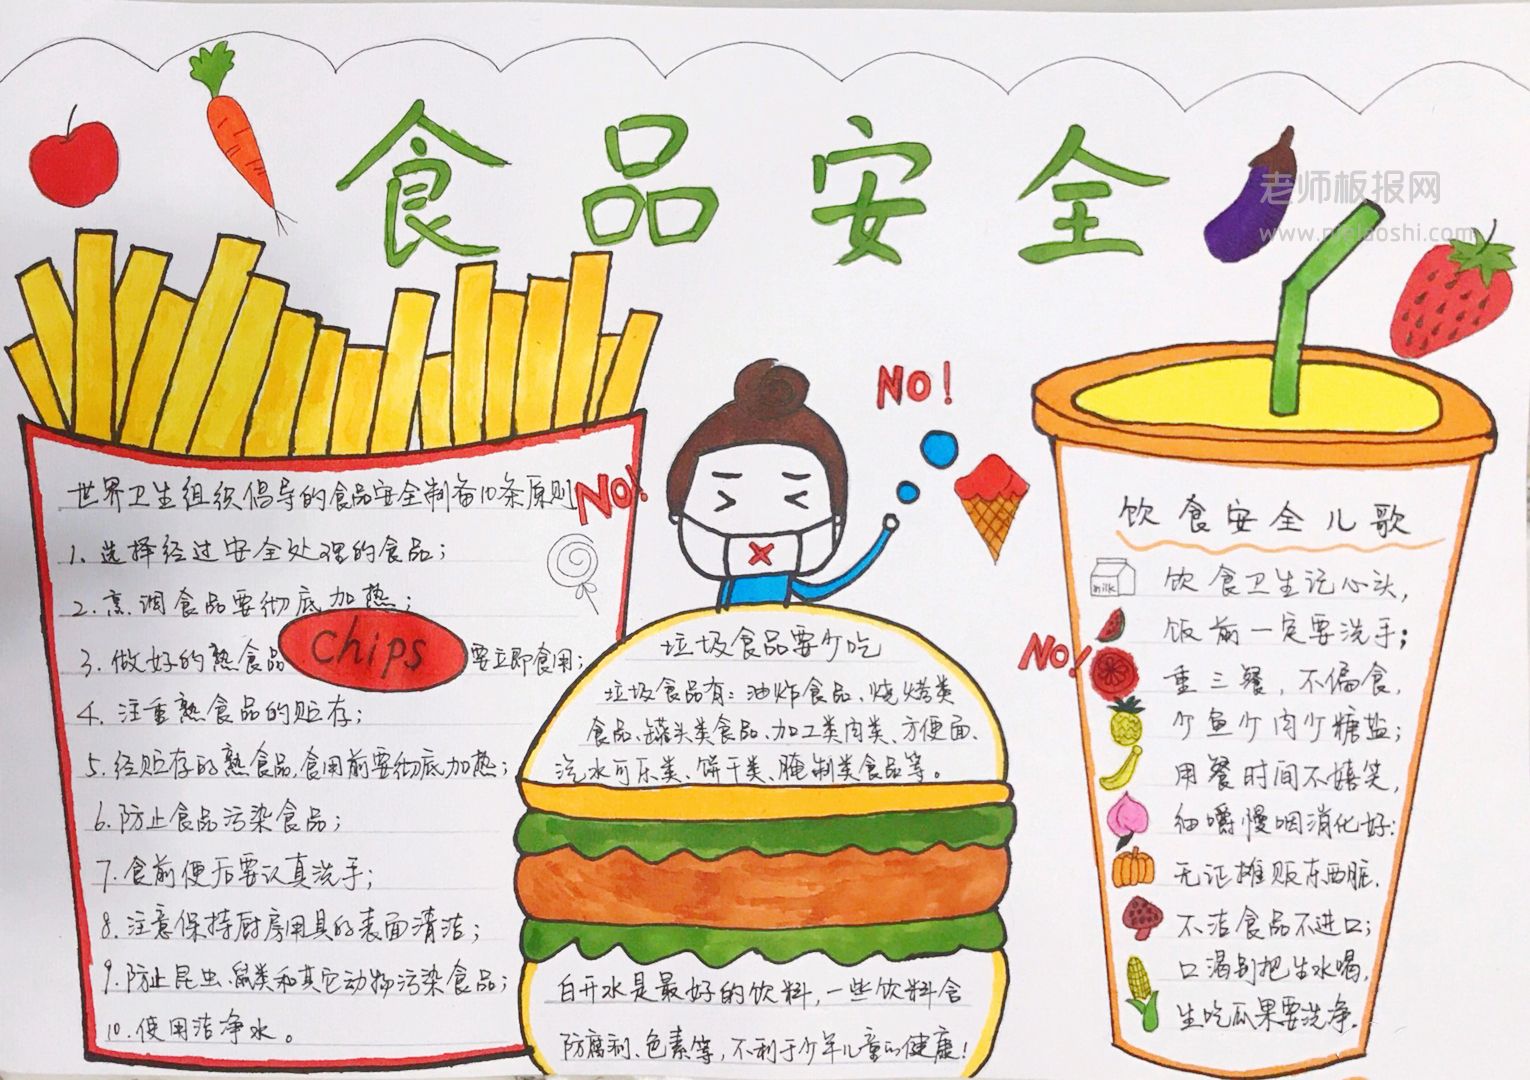 食品安全
老师板报网
世界卫生组织倡导的食品安全制备10条原则
NO!
1.选择经过安全处理的食品;
2.烹调食品要彻底加热;
3.做好的熟食品
Chips
要立即食用;
4.注重熟食品的贮存;
5.经贮存的熟食品,食用前要彻底加热;
6.防止食品污染食品;
7.食前便后要认真洗手;
8.注意保持厨房用具的表面清洁;
9.防止昆虫、鼠类和其它动物污染食品;
10.使用洁净水。
NO!
垃圾食品要少吃
垃圾食品有:油炸食品、烧烤类
食品、罐头类食品、加工类肉类、方便面、
汽水可乐类、饼干类、腌制类食品等。
白开水是最好的饮料,一些饮料含
防腐剂、色素等,不利于少年儿童的健康!
NO!
饮食安全儿歌
milk
饮食卫生记心头,
饭前一定要洗手;
重三餐,不偏食,
少鱼少肉少糖盐;
用餐时间不嬉笑,
细嚼慢咽消化好:
无证摊贩东西脏,
不洁食品不进口;
口渴别把生水喝,
生吃瓜果要洗净.